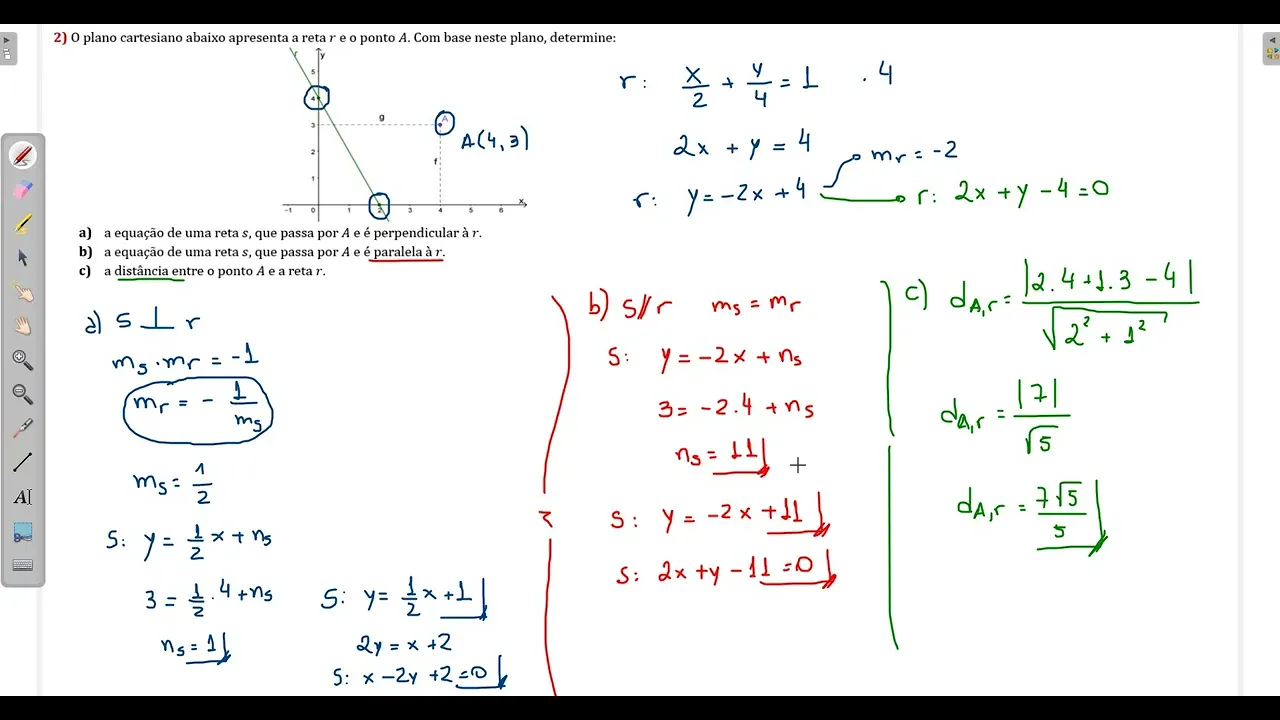 2) O plano cartesiano abaixo apresenta a reta r e o ponto A. Com base neste plano, determine:
r
y
5
4
3
2
1
-1
0
1
2
3
4
5
6
x
g
f
A
A(4,3)
a) a equação de uma reta s, que passa por A e é perpendicular à r.
b) a equação de uma reta s, que passa por A e é paralela à r.
c) a distância entre o ponto A e a reta r.
r: x/2 + y/4 = 1 . 4
2x + y = 4
r: y = -2x + 4
mr = -2
r: 2x + y - 4 = 0
a) s ⊥ r
ms . mr = -1
mr = - 1/ms
ms = 1/2
s: y = 1/2 x + ns
3 = 1/2 . 4 + ns
ns = 1
s: y = 1/2 x + 1
2y = x + 2
s: x - 2y + 2 = 0
b) s // r ms = mr
s: y = -2x + ns
3 = -2.4 + ns
ns = 11
s: y = -2x + 11
s: 2x + y - 11 = 0
c) dA,r = |2.4 + 1.3 - 4| / √(2² + 1²)
dA,r = |7| / √5
dA,r = 7√5 / 5
AI